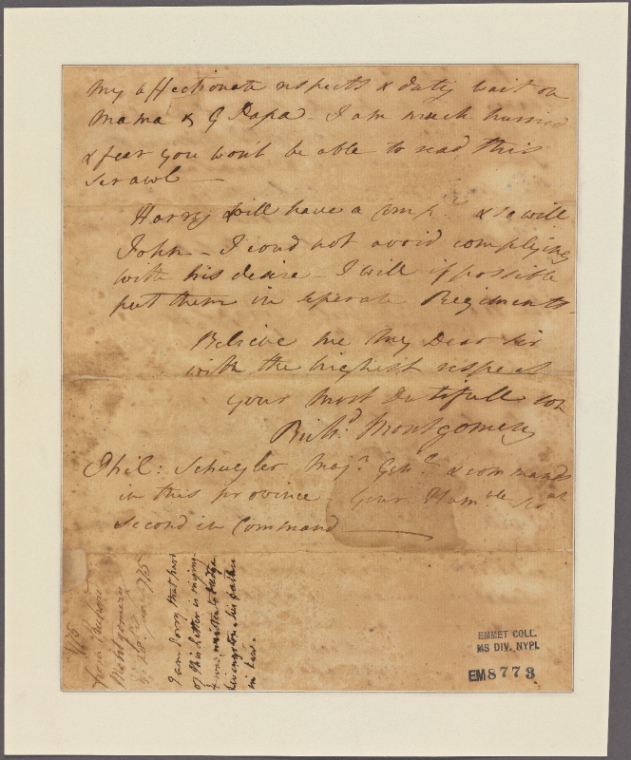 My affectionate respects & duty wait on
Mama & G Papa. I am much hurried
& fear you wont be able to read this
scrawl —
Harry will have a Comp.y & so will
John — I coud not avoid complying
with his desire — I will if possible
put them in seperate Regiments
Believe me My Dear Sir
with the highest respect
your most dutifull son
Rich.d Montgomery
Phil: Schuyler Maj.r Gen.l & commands
in this province. Your Hum.ble
Second in Command —
from
Montgomery
I am sorry that part
of this letter is
it was written to Judge
Livingston his father
in law.
EMMET COLL.
MS DIV., NYPL
EM8773